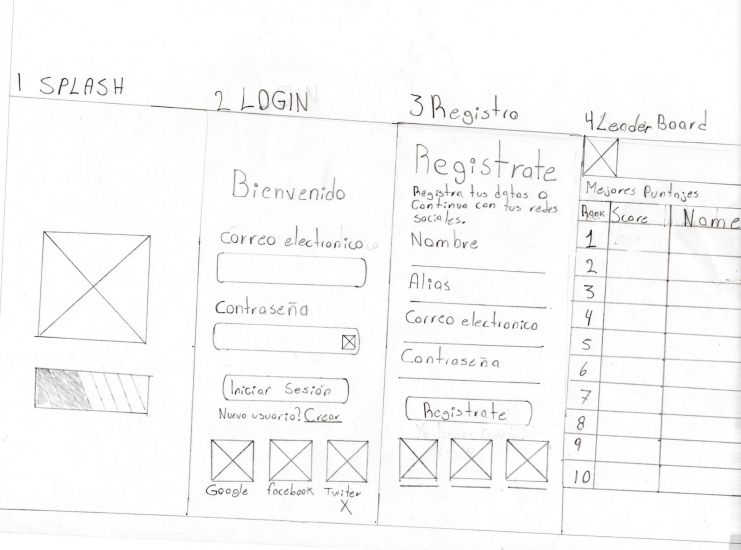 1 SPLASH
2 LOGIN
Bienvenido
Correo electronico
Contraseña
Iniciar Sesión
Nuevo usuario? Crear
Google facebook Twiter
X
3 Registro
Registrate
Registra tus datos o
Continua con tus redes
sociales.
Nombre
Alias
Correo electronico
Contraseña
Registrate
4 Leader Board
Mejores Puntajes
Rank Score Name
1
2
3
4
5
6
7
8
9
10